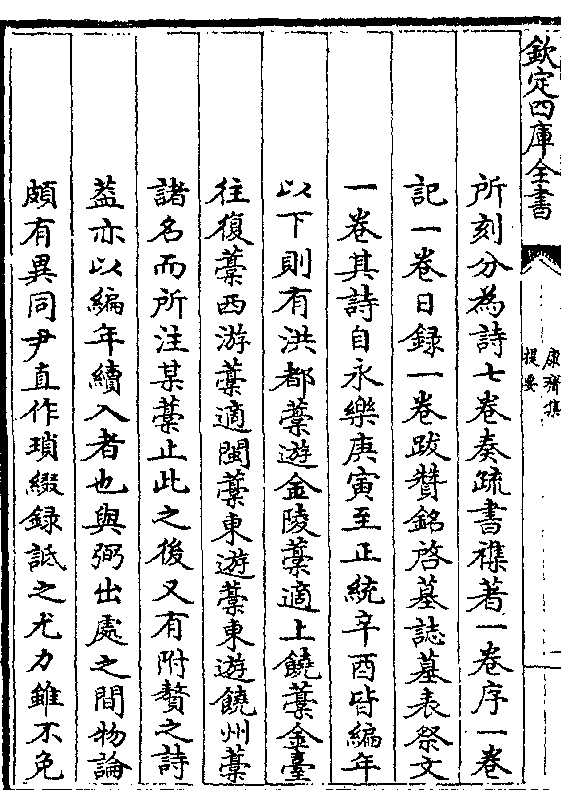 欽定四庫全書
康齋集
提要
所刻分為詩七卷奏疏書襍著一卷序一卷
記一卷日録一卷跋贊銘啓墓誌墓表祭文
一卷其詩自永樂庚寅至正統辛酉皆編年
以下則有洪都藁遊金陵藁適上饒藁金臺
往復藁西游藁適閩藁東遊藁東遊饒州藁
諸名而所注某藁止此之後又有附贅之詩
葢亦以編年續入者也與弼出處之間物論
頗有異同尹直作瑣綴録詆之尤力雖不免